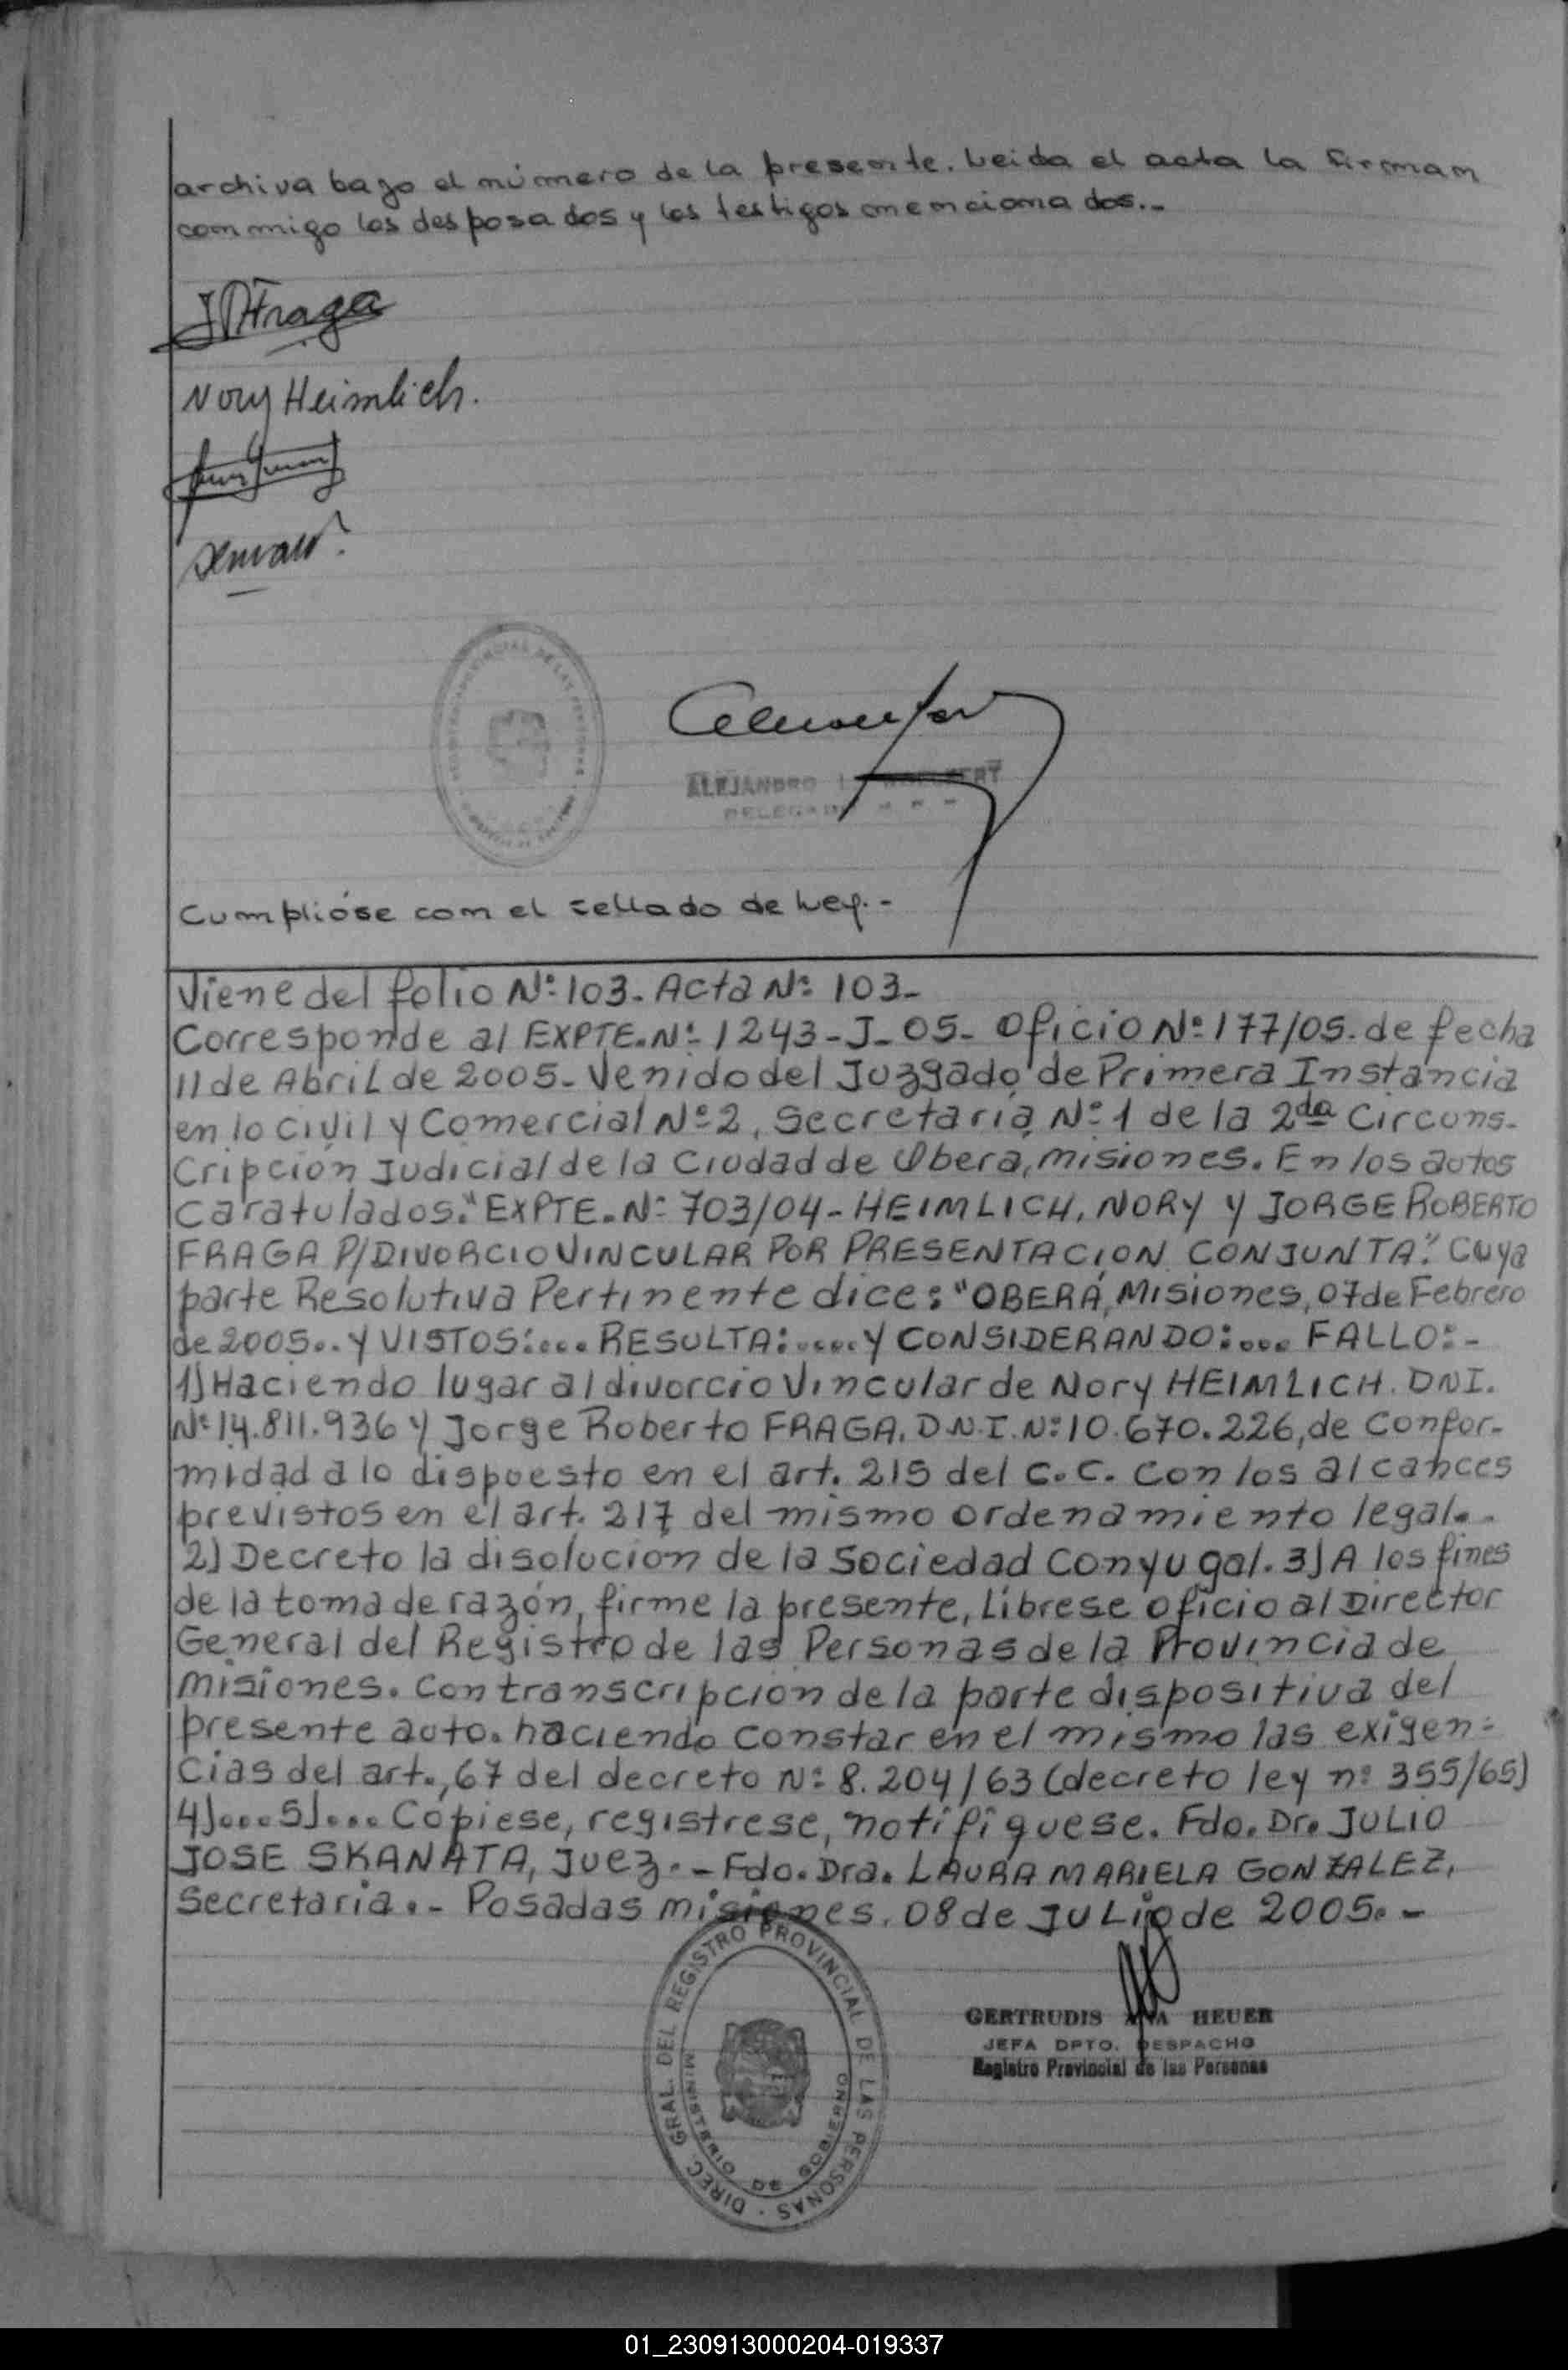 archiva bajo el número de la presente. Leida el acta la firman
conmigo los desposados y los testigos mencionados.-
JRFraga
Nory Heimlich.
ALEJANDRO
DELEGADO
Cumplióse con el sellado de Ley.-
Viene del folio Nº 103. Acta Nº 103-
Corresponde al EXPTE. Nº 1243-J-05- Oficio Nº 177/05. de fecha
11 de Abril de 2005- Venido del Juzgado de Primera Instancia
en lo Civil y Comercial Nº 2, Secretaría Nº 1 de la 2da Circuns-
cripción Judicial de la Ciudad de Obera, Misiones. En los autos
Caratulados: "EXPTE. Nº 703/04- HEIMLICH, NORY Y JORGE ROBERTO
FRAGA P/DIVORCIO VINCULAR POR PRESENTACION CONJUNTA". Cuya
parte Resolutiva Pertinente dice: "OBERÁ, Misiones, 07 de Febrero
de 2005.. Y VISTOS:.... RESULTA:..... Y CONSIDERANDO:.... FALLO:-
1) Haciendo lugar al divorcio Vincular de Nory HEIMLICH. DNI.
Nº 14.811.936 y Jorge Roberto FRAGA. D.N.I. Nº 10.670.226, de Confor-
midad a lo dispuesto en el art. 215 del C.C. Con los alcances
previstos en el art. 217 del mismo ordenamiento legal.-
2) Decreto la disolucion de la Sociedad Conyugal. 3) A los fines
de la toma de razón, firme la presente, Líbrese oficio al Director
General del Registro de las Personas de la Provincia de
Misiones. Con transcripcion de la parte dispositiva del
presente auto. haciendo constar en el mismo las exigen-
cias del art., 67 del decreto Nº 8.204/63 (decreto ley nº 355/65)
4).... 5).... Copiese, registrese, notifíquese. Fdo. Dr. JULIO
JOSE SKANATA, Juez.- Fdo. Dra. LAURA MARIELA GONZALEZ,
Secretaria.- Posadas Misiones, 08 de JULio de 2005.-
DIREC. GRAL. DEL REGISTRO PROVINCIAL DE LAS PERSONAS
MINISTERIO DE GOBIERNO
GERTRUDIS ANA HEUER
JEFA DPTO. DESPACHO
Registro Provincial de las Personas
01_230913000204-019337